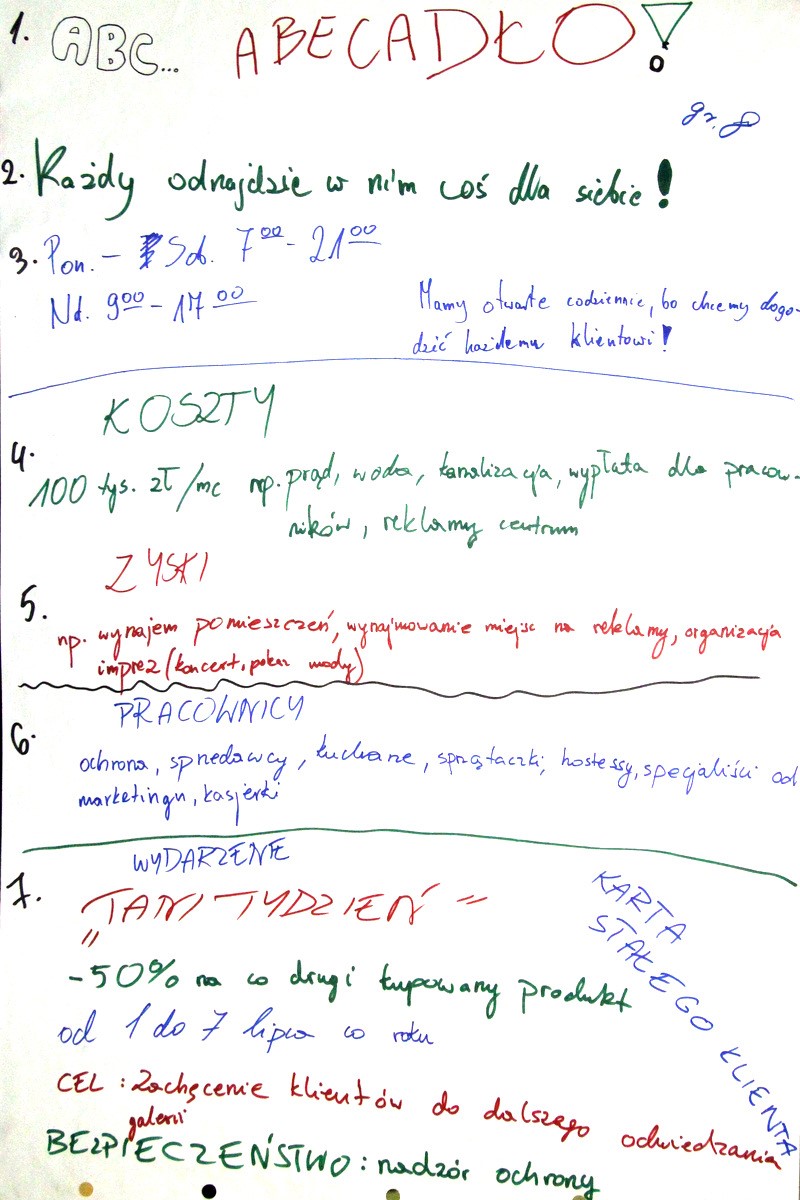 1. ABC... ABECADŁO!
gr. 8
2. Każdy odnajdzie w nim coś dla siebie!
3. Pon. - Sob. 7⁰⁰ - 21⁰⁰
Nd. 9⁰⁰ - 17⁰⁰
Mamy otwarte codziennie, bo chcemy dogo-
dzić każdemu klientowi!
KOSZTY
4. 100 tys. zł/mc np. prąd, woda, kanalizacja, wypłata dla pracow-
ników, reklamy centrum
ZYSKI
5. np. wynajem pomieszczeń, wynajmowanie miejsc na reklamy, organizacja
imprez (koncert, pokaz mody)
PRACOWNICY
6. ochrona, sprzedawcy, kucharze, sprzątaczki, hostessy, specjaliści od
marketingu, kasjerki
WYDARZENIE
7. „TANI TYDZIEŃ"
KARTA
STAŁEGO KLIENTA
-50% na co drugi kupowany produkt
od 1 do 7 lipca co roku
CEL: Zachęcenie klientów do dalszego odwiedzania
galerii
BEZPIECZEŃSTWO: nadzór ochrony